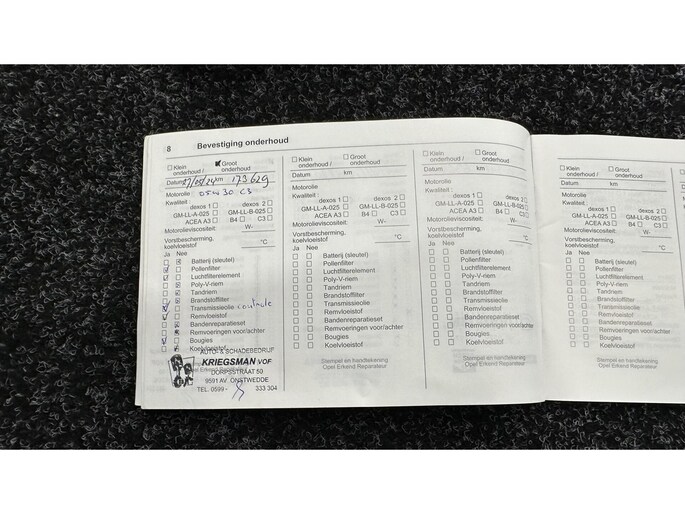 8 Bevestiging onderhoud
Klein onderhoud / Groot onderhoud
Datum 27/05/24 km 173629
Motorolie 05W30 C3
Kwaliteit :
dexos 1 dexos 2
GM-LL-A-025 GM-LL-B-025
ACEA A3 B4 C3
Motorolieviscositeit: W-
Vorstbescherming, koelvloeistof °C
Ja Nee
Batterij (sleutel)
Pollenfilter
Luchtfilterelement
Poly-V-riem
Tandriem
Brandstoffilter
Transmissieolie controle
Remvloeistof
Bandenreparatieset
Remvoeringen voor/achter
Bougies
Koelvloeistof
AUTO- & SCHADEBEDRIJF
KRIEGSMAN VOF
DORPSSTRAAT 50
9591 AV. ONSTWEDDE
TEL. 0599 - 333 304
Klein onderhoud / Groot onderhoud
Datum km
Motorolie
Kwaliteit :
dexos 1 dexos 2
GM-LL-A-025 GM-LL-B-025
ACEA A3 B4 C3
Motorolieviscositeit: W-
Vorstbescherming, koelvloeistof °C
Ja Nee
Batterij (sleutel)
Pollenfilter
Luchtfilterelement
Poly-V-riem
Tandriem
Brandstoffilter
Transmissieolie
Remvloeistof
Bandenreparatieset
Remvoeringen voor/achter
Bougies
Koelvloeistof
Stempel en handtekening
Opel Erkend Reparateur
Klein onderhoud / Groot onderhoud
Datum km
Motorolie
Kwaliteit :
dexos 1 dexos 2
GM-LL-A-025 GM-LL-B-025
ACEA A3 B4 C3
Motorolieviscositeit: W-
Vorstbescherming, koelvloeistof °C
Ja Nee
Batterij (sleutel)
Pollenfilter
Luchtfilterelement
Poly-V-riem
Tandriem
Brandstoffilter
Transmissieolie
Remvloeistof
Bandenreparatieset
Remvoeringen voor/achter
Bougies
Koelvloeistof
Stempel en handtekening
Opel Erkend Reparateur
Klein onderhoud / Groot onderhoud
Datum km
Motorolie
Kwaliteit :
dexos 1 dexos 2
GM-LL-A-025 GM-LL-B-025
ACEA A3 B4
Motorolieviscositeit: W-
Vorstbescherming, koelvloeistof
Ja Nee
Batterij (sleutel)
Pollenfilter
Luchtfilterelement
Poly-V-riem
Tandriem
Brandstoffilter
Transmissieolie
Remvloeistof
Bandenreparatieset
Remvoeringen voor/achter
Bougies
Koelvloeistof
Stempel en handtekening
Opel Erkend Reparateur